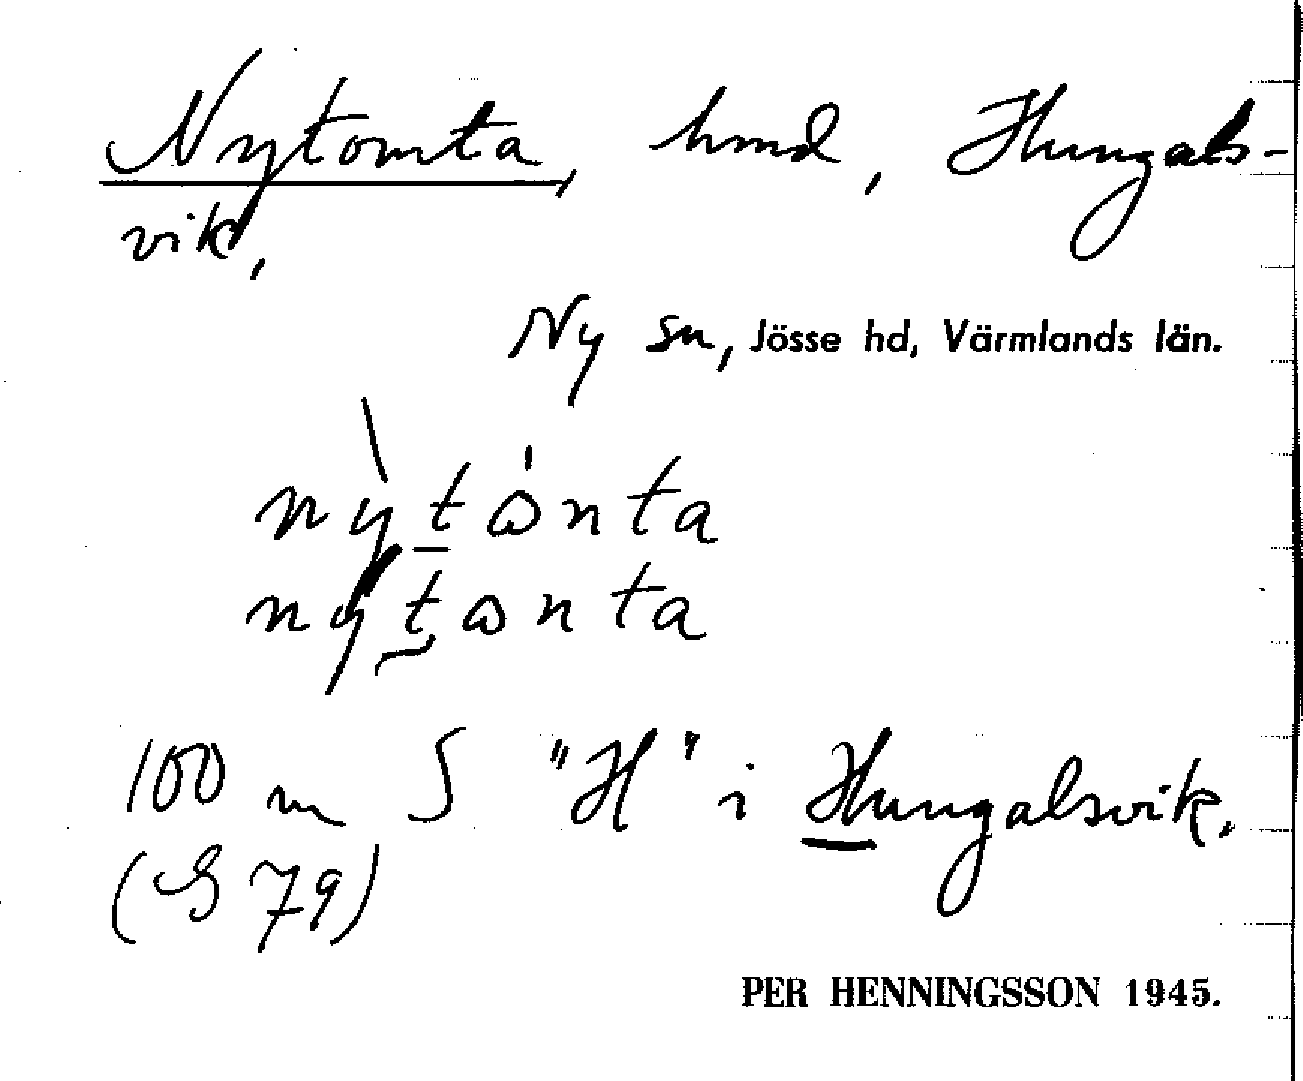 Nytomta, hmd, Hungals-
vik,
Ny sn, Jösse hd, Värmlands län.
nỳtω̍nta
nýtωnta
100 m S "H" i Hungalsvik.
(G 79)
PER HENNINGSSON 1945.